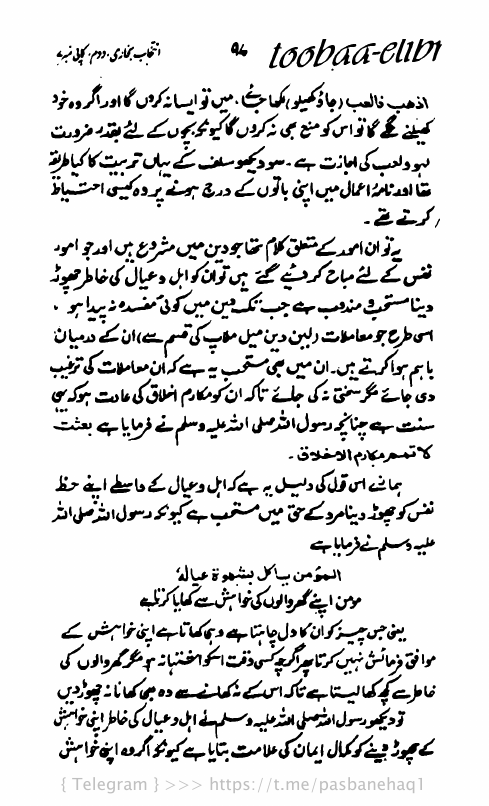 انتخاب بخاری۔ دوم۔ کاپی نمبر ۷ ۹۷ toobaa-elibr
اذهب فالعب (جاؤ کھیلو) لکھا جائے، میں تو ایسا نہ کروں گا اور اگر وہ خود
کھیلنے لگے گا تو اس کو منع بھی نہ کروں گا کیونکہ بچوں کے لئے بقدر ضرورت
لہو و لعب کی اجازت ہے۔ سو دیکھو سلف کے یہاں تربیت کا کیا طریقہ
تھا اور نامۂ اعمال میں اپنی باتوں کے درج ہونے پر وہ کیسی احتیاط
کرتے تھے۔
یہ تو ان امور کے متعلق کلام تھا جو دین میں مشروع ہیں اور جو امور
نفس کے لئے مباح کر دیئے گئے ہیں تو ان کو اہل و عیال کی خاطر چھوڑ
دینا مستحب و مندوب ہے جب تک دین میں کوئی مفسدہ نہ پیدا ہو،
اسی طرح جو معاملات (لین دین میل ملاپ کی قسم سے) ان کے درمیان
باہم ہوا کرتے ہیں۔ ان میں بھی مستحب یہ ہے کہ ان معاملات کی ترغیب
دی جائے مگر سختی نہ کی جائے تاکہ ان کو مکارم اخلاق کی عادت ہو کہ یہی
سنت ہے چنانچہ رسول اللہ صلی اللہ علیہ وسلم نے فرمایا ہے بعثت
لاتمم مکارم الاخلاق۔
ہمارے اس قول کی دلیل یہ ہے کہ اہل و عیال کے واسطے اپنے حظ
نفس کو چھوڑ دینا مرد کے حق میں مستحب ہے کیونکہ رسول اللہ صلی اللہ
علیہ وسلم نے فرمایا ہے
المؤمن یاکل بشھوۃ عیالہ
مومن اپنے گھر والوں کی خواہش سے کھایا کرتا ہے
یعنی جس چیز کو ان کا دل چاہتا ہے وہی کھاتا ہے اپنی خواہش کے
موافق فرمائش نہیں کرتا پھر اگرچہ کسی وقت اسکو اشتہا نہ ہو مگر گھر والوں کی
خاطر سے کچھ کھا لیتا ہے تاکہ اس کے نہ کھانے سے وہ بھی کھانا نہ چھوڑ دیں
تو دیکھو رسول اللہ صلی اللہ علیہ وسلم نے اہل و عیال کی خاطر اپنی خواہش
کے چھوڑ دینے کو کمال ایمان کی علامت بتایا ہے کیونکہ اگر وہ اپنی خواہش
{ Telegram } >>> https://t.me/pasbanehaq1